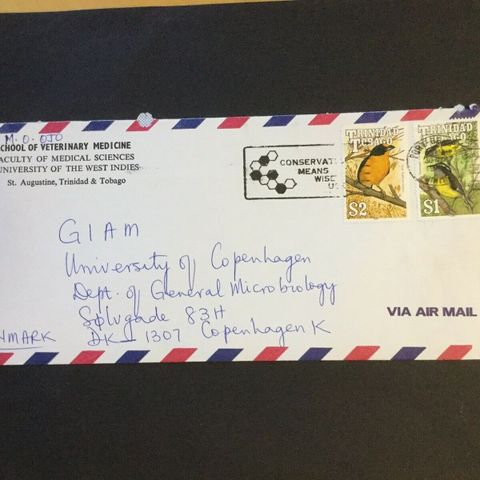 M. O. OJO
SCHOOL OF VETERINARY MEDICINE
FACULTY OF MEDICAL SCIENCES
UNIVERSITY OF THE WEST INDIES
St. Augustine, Trinidad & Tobago
CONSERVAT
MEANS
WISE
US
TRINIDAD
TOBAGO
$2
TRINIDAD
TOBAGO
$1
GIAM
University of Copenhagen
Dept. of General Microbiology
Sølvgade 83H
DK-1307 Copenhagen K
NMARK
VIA AIR MAIL